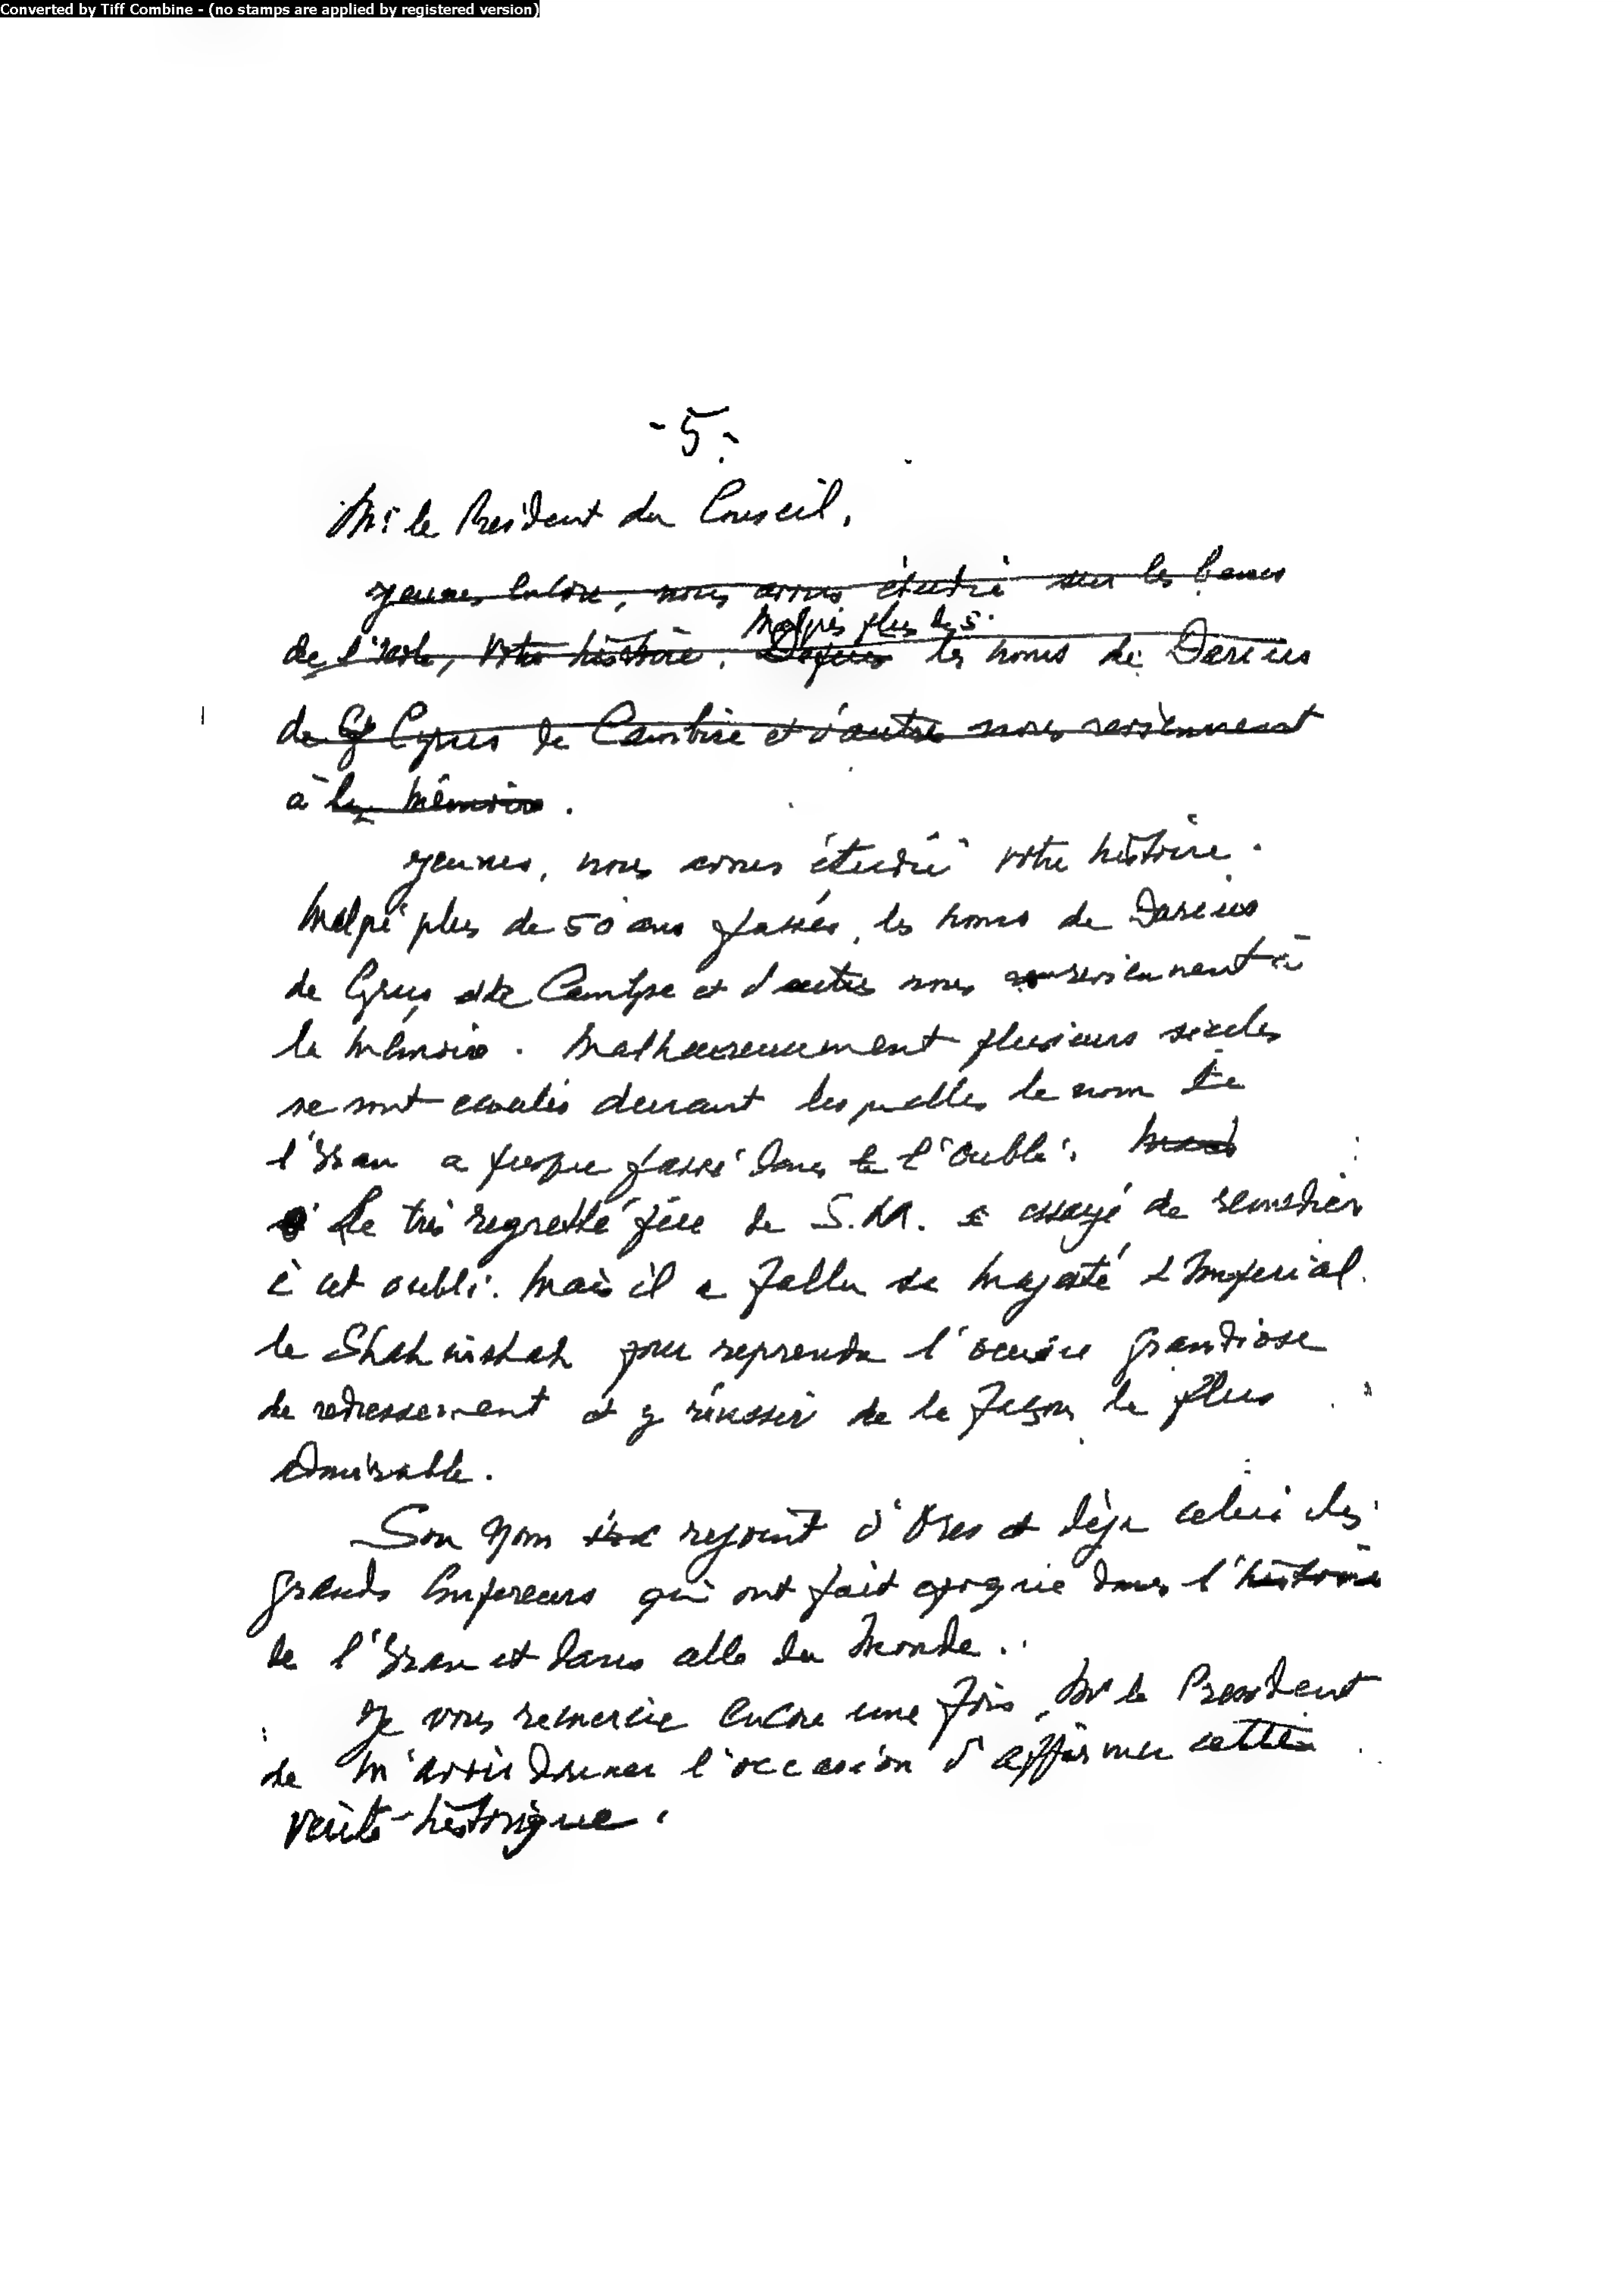 Converted by Tiff Combine - (no stamps are applied by registered version)
- 5 -
Mr le President du Conseil,
Jeunes encore, nous avons étudié sur les bancs
Malgré plus de 5
de l'école, votre histoire. les noms de Darius
de Cy Cyrus de Cambise et d'autres nous reviennent
à la mémoire.
Jeunes, nous avons étudié votre histoire.
Malgré plus de 50 ans passés, les noms de Darius
de Cyrus, de Cambyse et d'autres nous reviennent à
la mémoire. Malheureusement plusieurs siècles
se sont écoulés durant lesquelles le nom de
l'Iran a presque passé dans l'oubli. Mais
Le très regretté père de S.M. a essayé de remédier
à cet oubli. Mais il a fallu sa Majesté Imperial
le Shahinshah pour reprendre l'oeuvre grandiose
de redressement et y réussir de la façon la plus
admirable.
Son nom rejoint d'ores et déjà celui des
grands Empereurs qui ont fait epoque dans l'histoire
de l'Iran et dans celle du Monde.
Je vous remercie encore une fois, Mr le President
de m'avoir donner l'occasion d'affirmer cette
verité historique.